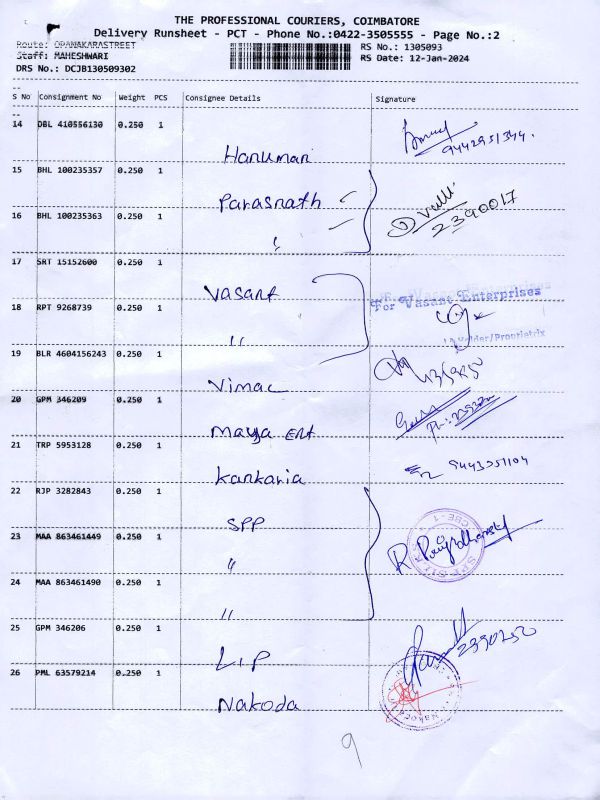 THE PROFESSIONAL COURIERS, COIMBATORE
Delivery Runsheet - PCT - Phone No.:0422-3505555 - Page No.:2
Route: OPANAKARASTREET RS No.: 1305093
Staff: MAHESHWARI RS Date: 12-Jan-2024
DRS No.: DCJB130509302
S No Consignment No Weight PCS Consignee Details Signature
14 DBL 410556130 0.250 1
Hanuman 9442951344.
15 BHL 100235357 0.250 1
Parasnath
16 BHL 100235363 0.250 1 2390017
"
17 SRT 15152600 0.250 1
Vasant For Vasant Enterprises
18 RPT 9268739 0.250 1
" Holder/Proprietrix
19 BLR 4604156243 0.250 1
Vimal
20 GPM 346209 0.250 1
Maya Ent
21 TRP 5953128 0.250 1
Kankaria 9443351104
22 RJP 3282843 0.250 1
SPP
23 MAA 863461449 0.250 1
"
24 MAA 863461490 0.250 1
"
25 GPM 346206 0.250 1
LIP 2390250
26 PML 63579214 0.250 1
Nakoda
9